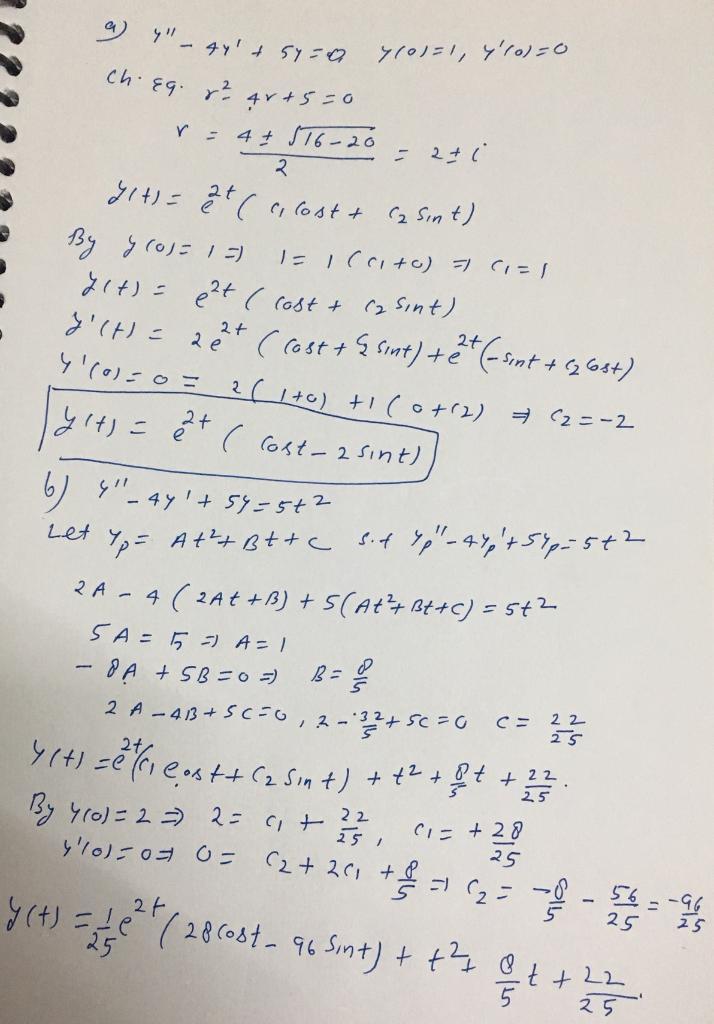 a) y'' - 4y' + 5y = 0 y(0)=1, y'(0)=0
Ch. Eq. r² - 4r + 5 = 0
r = (4 ± √(16-20))/2 = 2 ± i
y(t) = e^{2t} ( c₁ cost + c₂ sint)
By y(0) = 1 ⇒ 1 = 1 (c₁+0) ⇒ c₁ = 1
y(t) = e^{2t} ( cost + c₂ sint)
y'(t) = 2e^{2t} ( cost + c₂ sint) + e^{2t} (-sint + c₂ cost)
y'(0) = 0 = 2(1+0) + 1(0+c₂) ⇒ c₂ = -2
y(t) = e^{2t} ( cost - 2 sint)
b) y'' - 4y' + 5y = 5t²
Let y_p = At² + Bt + C s.t y_p'' - 4y_p' + 5y_p = 5t²
2A - 4(2At + B) + 5(At² + Bt + C) = 5t²
5A = 5 ⇒ A = 1
-8A + 5B = 0 ⇒ B = 8/5
2A - 4B + 5C = 0, 2 - 32/5 + 5C = 0 C = 22/25
y(t) = e^{2t}(c₁ cost + c₂ sint) + t² + 8/5 t + 22/25.
By y(0) = 2 ⇒ 2 = c₁ + 22/25, c₁ = +28/25
y'(0) = 0 ⇒ 0 = c₂ + 2c₁ + 8/5 ⇒ c₂ = -8/5 - 56/25 = -96/25
y(t) = 1/25 e^{2t} (28 cost - 96 sint) + t² + 8/5 t + 22/25.